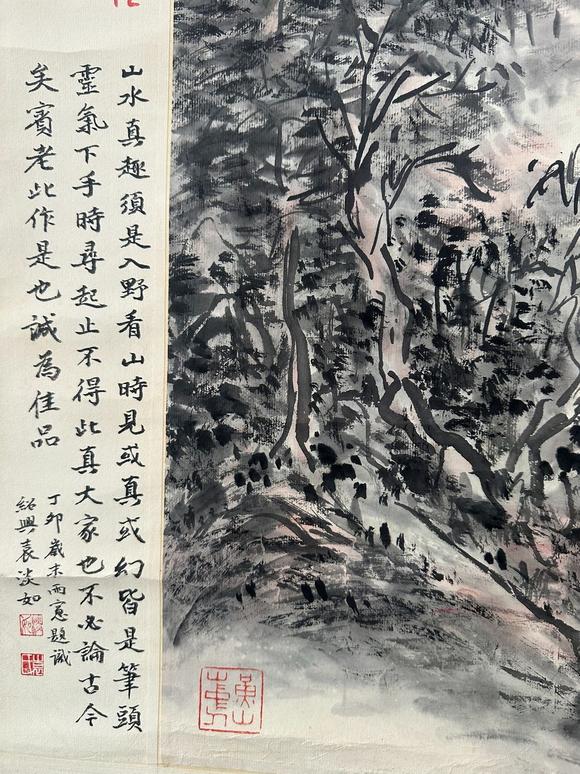 山水真趣須是入野看山時見或真或幻皆是筆頭
靈氣下手時尋起止不得此真大家也不必論古今
矣賓老此作是也誠為佳品
丁卯歲末雨窓題識
紹興袁淡如